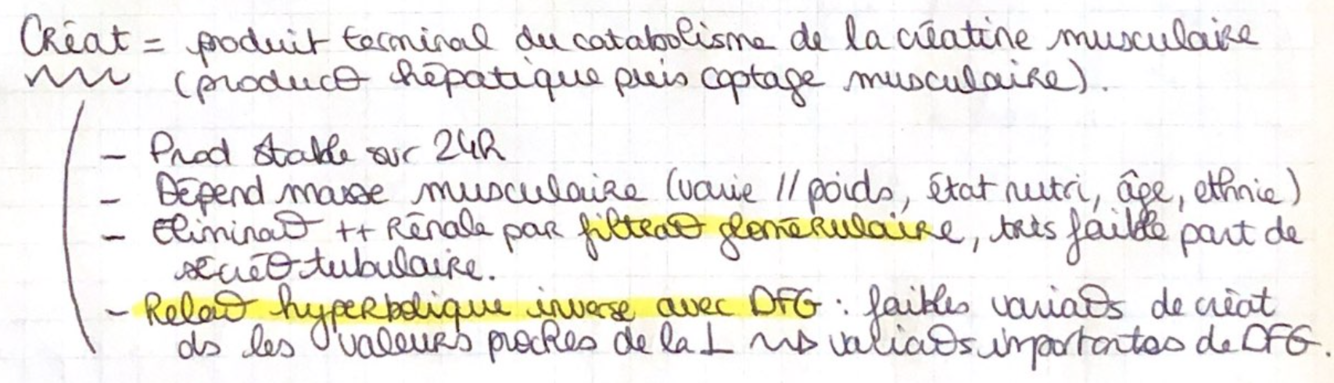 Créat = produit terminal du catabolisme de la créatine musculaire
(product° hépatique puis captage musculaire).
- Prod stable sur 24h
- Dépend masse musculaire (varie // poids, état nutri, âge, ethnie)
- Eliminat° ++ Rénale par filtrat° glomérulaire, très faible part de
sécrét° tubulaire.
- Relat° hyperbolique inverse avec DFG : faibles variat°s de créat
ds les valeurs proches de la L ~> variat°s importantes de DFG.